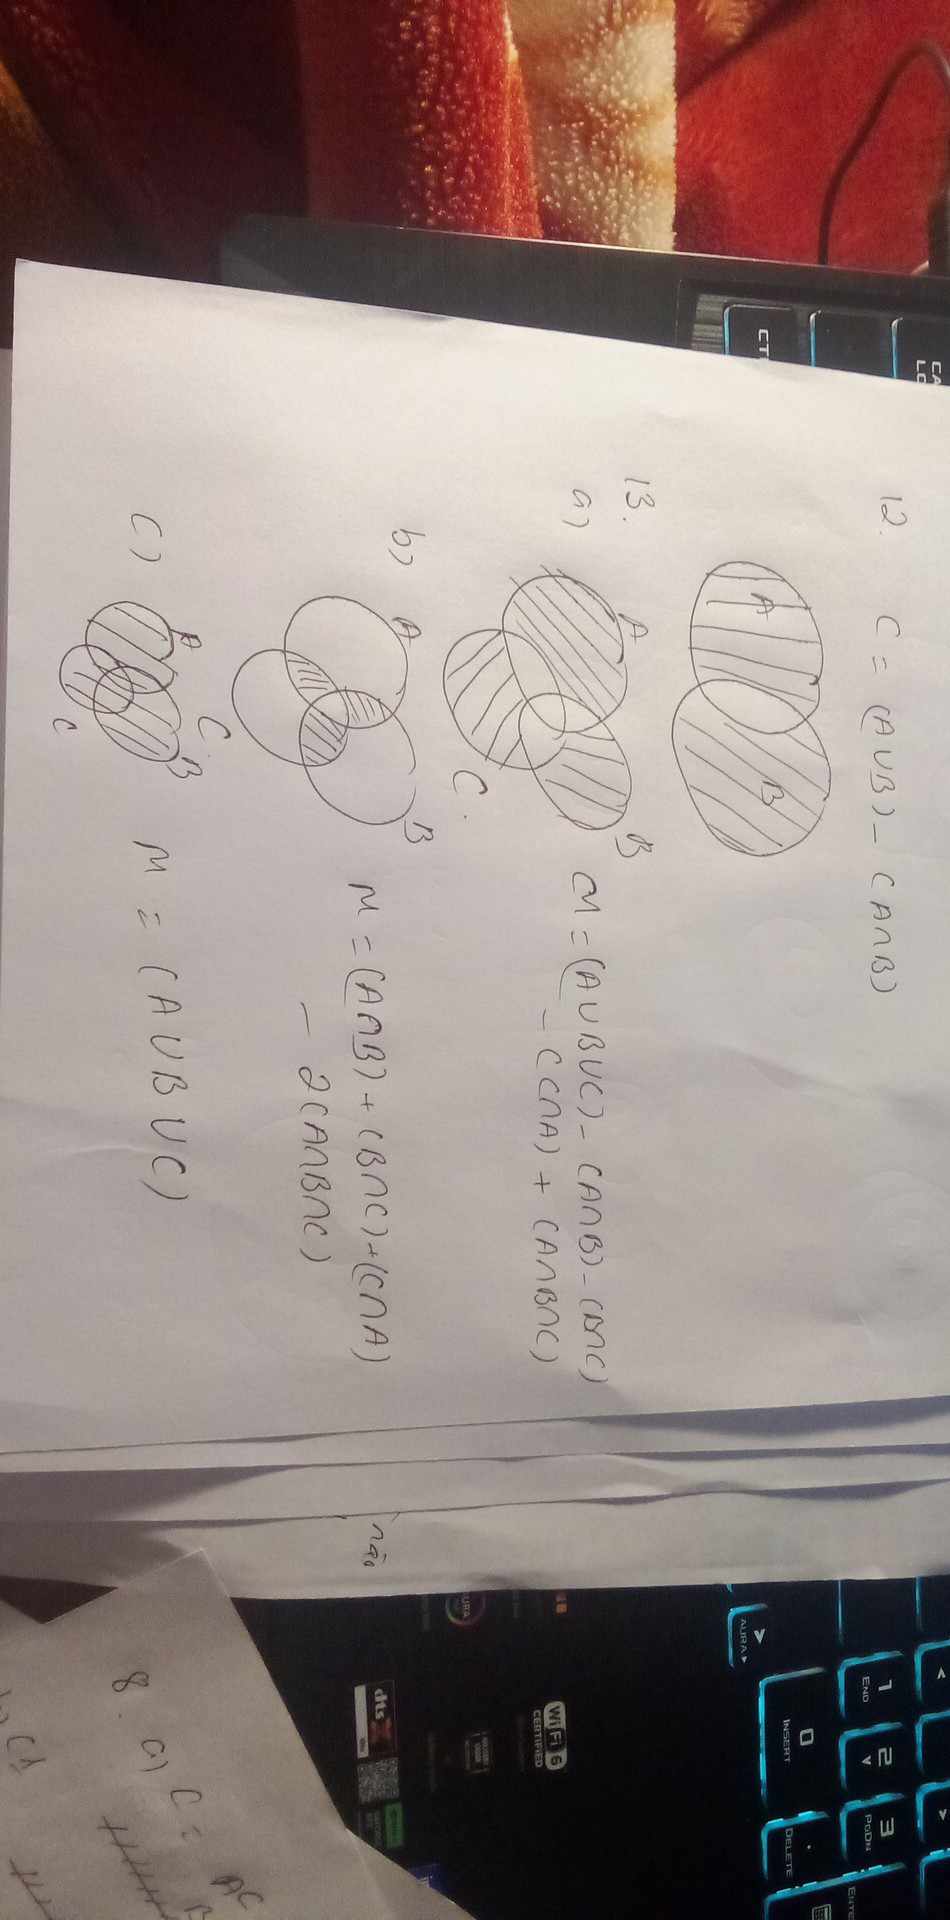 12. C = (A∪B) - (A∩B)
A B
13.
a) A B C.
M = (A∪B∪C) - (A∩B) - (B∩C)
- (C∩A) + (A∩B∩C)
b) A B C.
M = (A∩B) + (B∩C) + (C∩A)
- 2(A∩B∩C)
c) A B C
M = (A∪B∪C)
não
8. a) C =
CA
LC
CT
<
>
1
END
2
3
PGDN
ENTE
0
INSERT
.
DELETE
>
AURA
WiFi 6
CERTIFIED
URA
dts